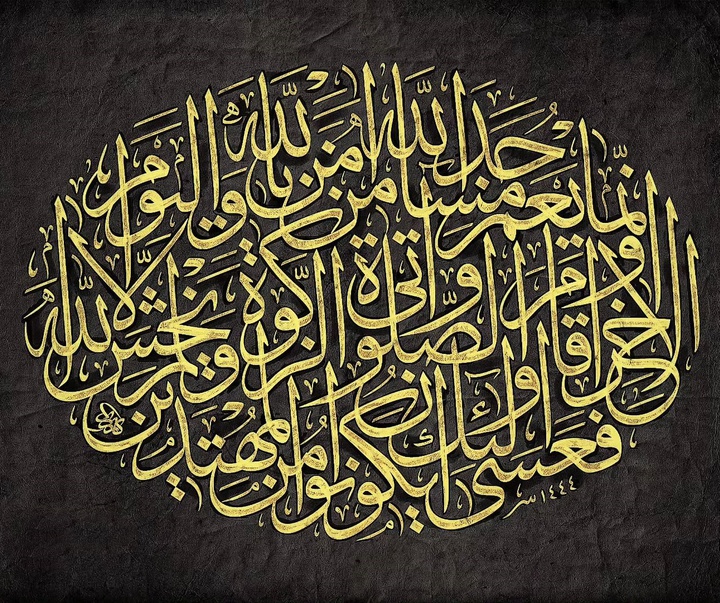 إنما يعمر مساجد الله من آمن بالله واليوم
الآخر وأقام الصلوة وآتى الزكوة ولم يخش إلا الله
فعسى أولئك أن يكونوا من المهتدين
١٤٤٤